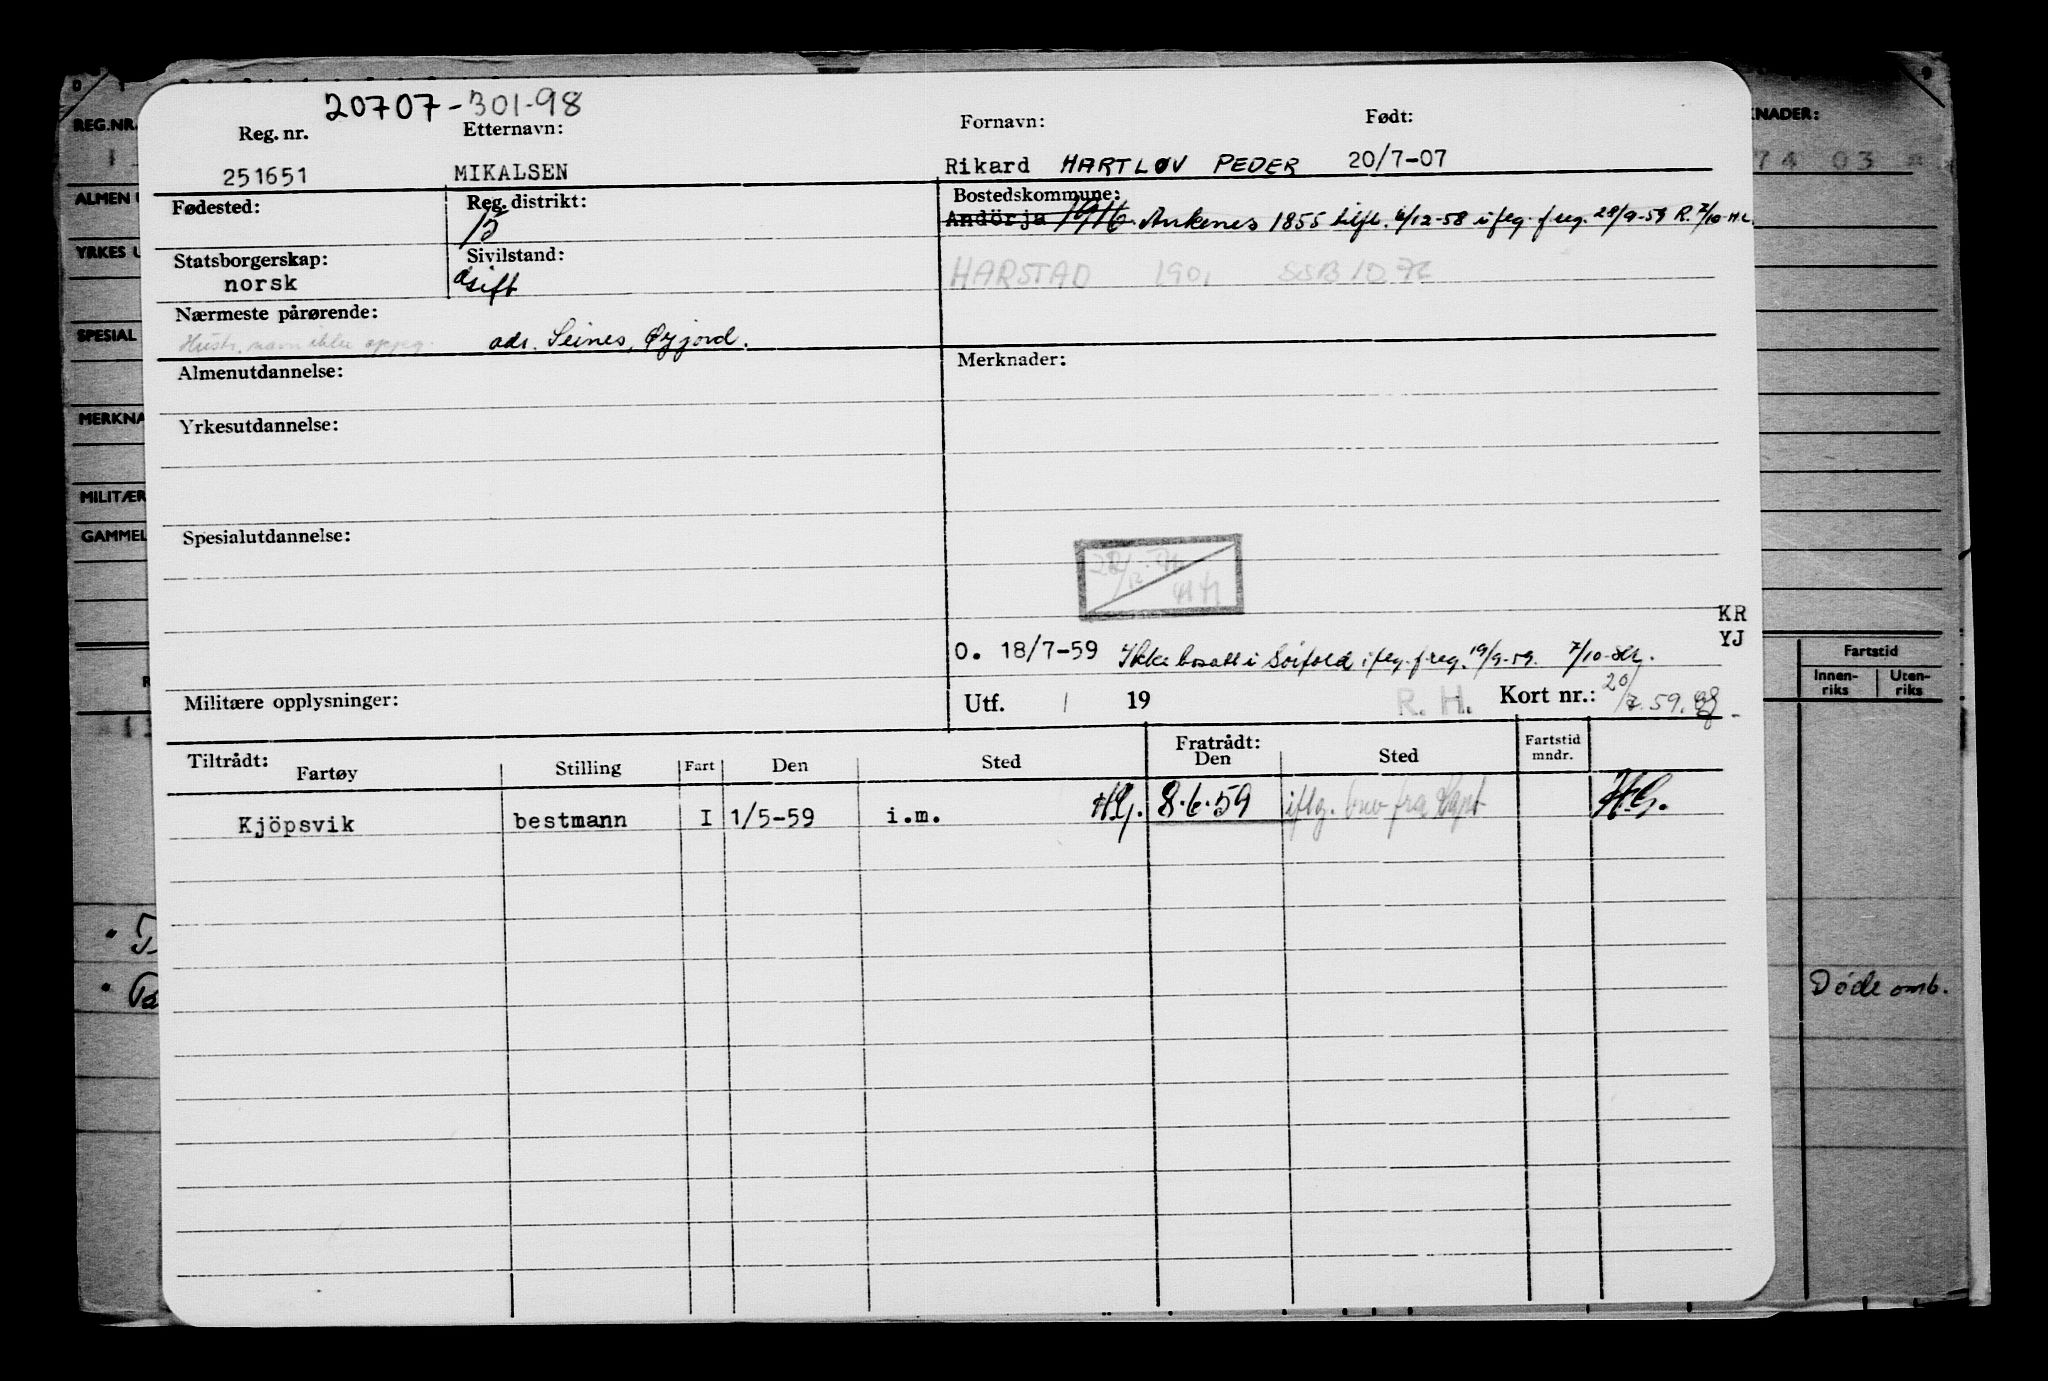 20707-301-98
Reg. nr. Etternavn: Fornavn: Født:
251651 MIKALSEN Rikard HARTLØV PEDER 20/7-07
Fødested: Reg. distrikt: Bostedskommune:
Andörja 1916 Ankenes 1855 tilfl. 6/12-58 iflg. f.reg. 28/9-59 R. 7/10-H.L.
Statsborgerskap: Sivilstand:
norsk gift
HARSTAD 1901 SSB 10 72
Nærmeste pårørende:
Hustr. navn ikke oppg. adr. Seines, Øyjord.
Almenutdannelse: Merknader:
Yrkesutdannelse:
Spesialutdannelse:
KR
YJ
O. 18/7-59 Ikke bosatt i Sörfold iflg. f.reg. 19/9-59. 7/10-
Militære opplysninger: Utf. 19 R. H. Kort nr.: 20/7.59.
Tiltrådt: Fratrådt:
Fartøy Stilling Fart Den Sted Den Sted Fartstid mndr.
Kjöpsvik bestmann I 1/5-59 i.m. H.G. 8.6.59 iflg. brev fra H.G.
REG.NR.
ALMEN U
YRKES U
SPESIAL
MERKNA
MILITÆR
GAMMEL
KNADER:
74 03
Fartstid
Innen-riks Uten-riks
Døde omb.